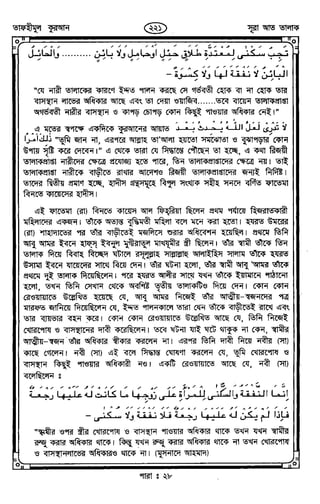 তাফহীমুল কুরআন ২২১ সূরা আত তালাক
تَجِبُ سُكْنٰى لِمُعْتَدَّةِ طَلَاقٍ حَائِلٍ اَوْحَامِلٍ وَلَا بَائِنٍ .......... وَالْحَائِلُ
الْبَائِنُ لَا نَفَقَةَ لَهَا وَلَا كِسْوَةَ -
“যে নারী তালাকের কারণে ইদ্দত পালন করছে সে গর্ভবতী হোক বা না হোক তার
বাসস্থান লাভের অধিকার আছে এবং তা দেয়া ওয়াজিব.......তবে বায়েন তালাকপ্রাপ্তা
অগর্ভবতী নারীর বাসস্থান ও কাপড় চোপড় কোন কিছুই পাওয়ার অধিকার নেই।”
এ মতের স্বপক্ষে একদিকে কুরআনের আয়াত لَا تَدْرِىْ لَعَلَّ اللّٰهَ يُحْدِثُ بَعْدَ
ذٰلِكَ اَمْرًا “তুমি জান না, এরপরে আল্লাহ তা’আলা হয়তো সমঝোতা ও বুঝাপড়ার কোন
উপায় সৃষ্টি করে দেবেন।” এ থেকে তারা যে সিদ্ধান্তে পৌঁছেন তা হচ্ছে, এ কথা রিজয়ী
তালাকপ্রাপ্তা নারীদের ক্ষেত্রে প্রযোজ্য হতে পারে, তিন তালাকপ্রাপ্তাদের ক্ষেত্রে নয়। তাই
তালাকপ্রাপ্তা নারীকে বাড়ীতে রাখার আদেশও রিজয়ী তালাকপ্রাপ্তাদের জন্যই নির্দিষ্ট।
তাদের দ্বিতীয় প্রমাণ হচ্ছে, হাদীস গ্রন্থসমূহে বিপুল সংখ্যক সহীহ সনদে বর্ণিত ফাতেমা
বিনতে কায়েসের হাদীস।
এই ফাতেমা (রা) বিনতে কায়েস আল ফিহরিয়া ছিলেন প্রথম পর্যায়ে হিজরাতকারী
মহিলাদের একজন। তাঁকে অত্যন্ত বুদ্ধিমতী মহিলা বলে মনে করা হতো। হযরত উমরের
(রা) শাহাদাতের পর তাঁর বাড়ীতেই মজলিসে শুরার অধিবেশন হয়েছিল। প্রথমে তিনি
আবু আমর ইবনে হাফস্ ইবনুল মুগীরাতুল মাখযুমীর স্ত্রী ছিলেন। তাঁর স্বামী তাঁকে তিন
তালাক দিয়ে বিবাহ বিচ্ছেদ ঘটালে রসূলুল্লাহ সাল্লাল্লাহু আলাইহি ওয়া সালাম তাঁকে হযরত
উসামা ইবনে যায়েদের সাথে বিয়ে দেন। তাঁর ঘটনা হলো, তাঁর স্বামী আবু ‘আমর তাঁকে
প্রথমে দুই তালাক দিয়েছিলেন। পরে হযরত আলীর সাথে যখন তাঁকে ইয়ামানে পাঠানো
হলো, তখন তিনি সেখান থেকে অবশিষ্ট তৃতীয় তালাকটিও দিয়ে দেন। কোন কোন
রেওয়ায়াতে উল্লেখিত হয়েছে যে, আবু আমর নিজেই তাঁর আত্মীয়-স্বজনদের পত্র
মারফত জানিয়ে দিয়েছিলেন যে, ইদ্দত পালনকালে তারা যেন তাঁকে বাড়ীতেই রাখে এবং
তার ব্যয়ভার বহন করে। কোন কোন রেওয়ায়াতে উল্লেখিত আছে যে, তিনি নিজেই
খোরপোষ ও বাসস্থানের দাবী করেছিলেন। তবে ঘটনা যাই ঘটে থাকুক না কেন, স্বামীর
আত্মীয়-স্বজন তাঁর অধিকার স্বীকার করলেন না। এরপর তিনি দাবী নিয়ে নবীর (সা)
কাছে গেলেন। নবী (সা) এই বলে সিদ্ধান্ত ঘোষণা করলেন যে, তুমি খোরপোষ ও
বাসস্থান কিছুই পাওয়ার অধিকারী নও। একটি রেওয়ায়াতে আছে যে, নবী (সা)
বলেছিলেন :
اِنَّمَا النَّفَقَةُ وَالسُّكْنٰى لِلْمَرْاَةِ عَلٰى زَوْجِهَا مَا كَانَتْ لَهُ عَلَيْهَا رَجْعَةٌ
فَاِذَا لَمْ يَكُنْ لَهُ عَلَيْهَا رَجْعَةٌ فَلَا نَفَقَةَ وَلَا سُكْنٰى -
“স্বামীর ওপর স্ত্রীর খোরপোষ ও বাসস্থান পাওয়ার অধিকার থাকে তখন যখন স্বামীর
রুজু করার অধিকার থাকে। কিন্তু যখন রুজু করার অধিকার থাকে না তখন খোরপোষ
ও বাসস্থানলাভের অধিকারও থাকে না। (মুসনাদে আহমাদ)
পারা : ২৮